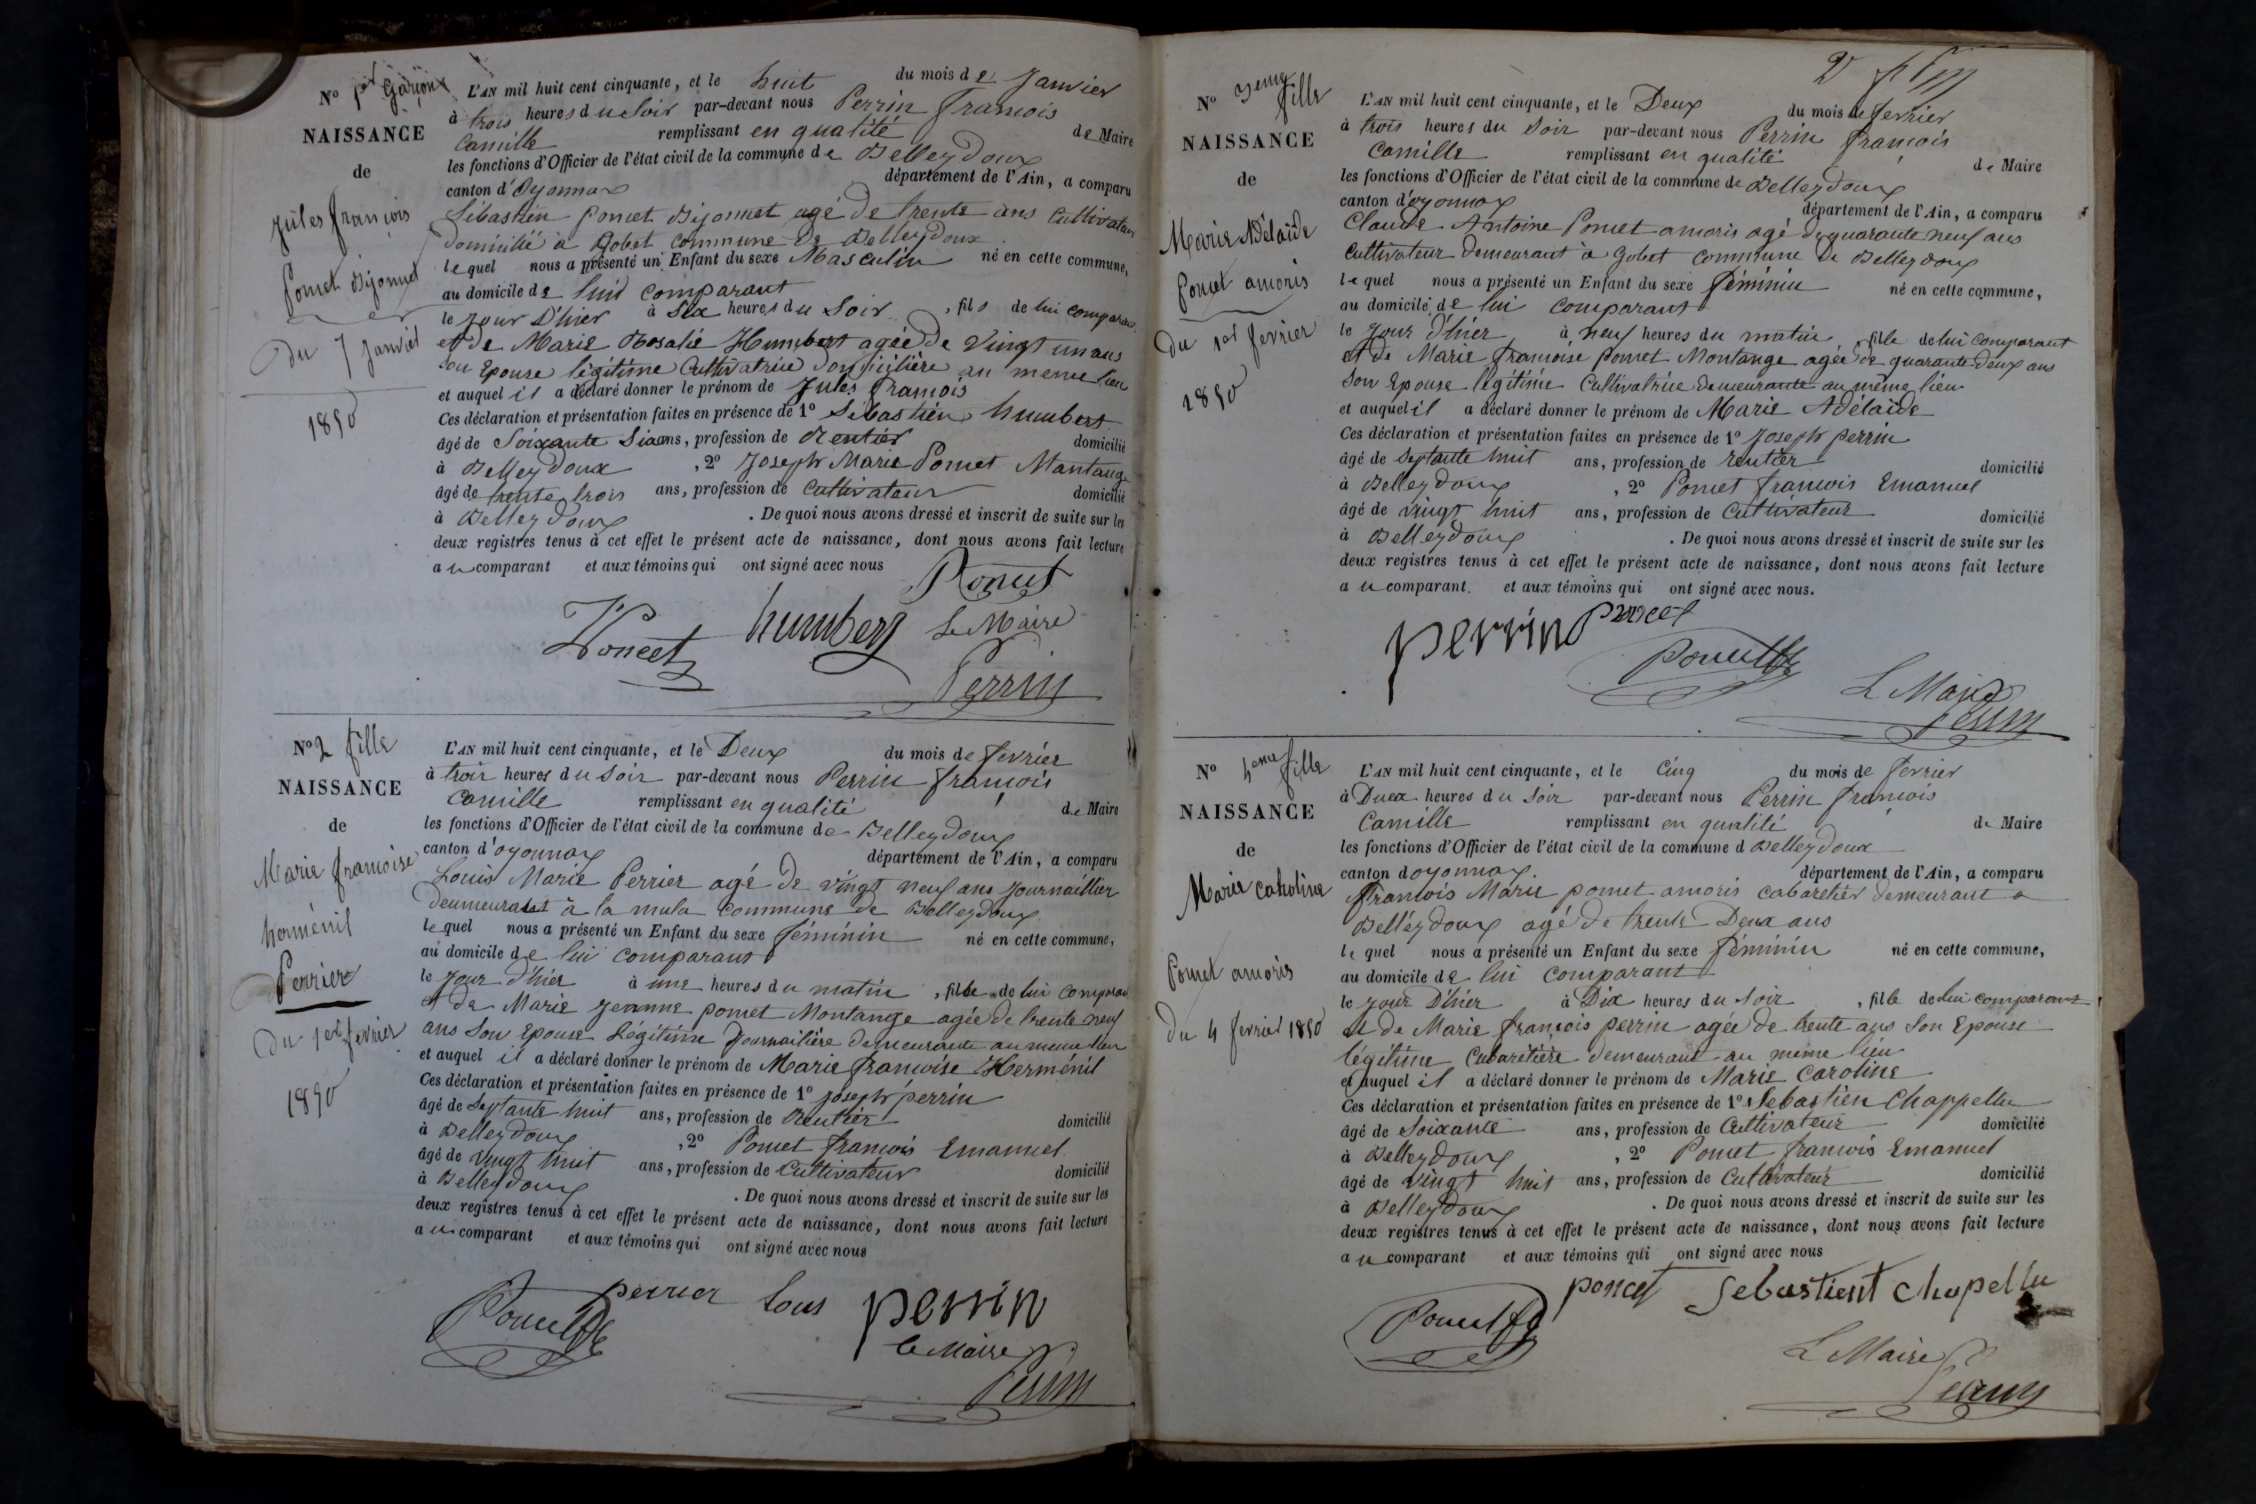 No 1er Garçon
NAISSANCE
de
Jules françois
Pomet Dijonnet
Du 7 Janvier
1850
L'AN mil huit cent cinquante, et le huit du mois de Janvier
à trois heures du Soir par-devant nous Perrin françois
Camille remplissant en qualité de Maire
les fonctions d'Officier de l'état civil de la commune de Belleydoux
canton d'Oyonnax département de l'Ain, a comparu
Sébastien Pomet Dijonnet agé de trente ans Cultivateur
domicilié à Gobet commune de Belleydoux
lequel nous a présenté un Enfant du sexe Masculin né en cette commune,
au domicile de luid comparant
le jour D'hier à Six heures du Soir, fils de lui comparant
et de Marie Rosalie Humbert agée de Vingt un ans
Son Epouse légitime Cultivatrice domicilière au meme lieu
et auquel il a déclaré donner le prénom de Jules françois
Ces déclaration et présentation faites en présence de 1o Sébastien humbert
âgé de Soixante Six ans, profession de Rentier domicilié
à Belleydoux, 2o Joseph Marie Pomet Montange
âgé de trente trois ans, profession de Cultivateur domicilié
à Belleydoux. De quoi nous avons dressé et inscrit de suite sur les
deux registres tenus à cet effet le présent acte de naissance, dont nous avons fait lecture
au comparant et aux témoins qui ont signé avec nous
Poncet
Poncet humbert Le Maire
Perrin
No 2 fille
NAISSANCE
de
Marie francoise
herménil
Perrier
Du 1er fevrier
1850
L'AN mil huit cent cinquante, et le Deux du mois de fevrier
à trois heures du Soir par-devant nous Perrin françois
Camille remplissant en qualité de Maire
les fonctions d'Officier de l'état civil de la commune de Belleydoux
canton d'oyonnax département de l'Ain, a comparu
Louis Marie Perrier agé de vingt neuf ans journaillier
deumeurant à la mula commune de Belleydoux
lequel nous a présenté un Enfant du sexe féminin né en cette commune,
au domicile de lui comparant
le jour d'hier à une heures du matin, fille de lui comparant
et de Marie jeanne pomet Montange agée de trente neuf
ans Son Epouse Légitime Journailière demeurante au meme lieu
et auquel il a déclaré donner le prénom de Marie francoise Herménil
Ces déclaration et présentation faites en présence de 1o joseph perrin
âgé de Septante huit ans, profession de Rentier domicilié
à Belleydoux, 2o Pomet françois Emanuel
âgé de vingt huit ans, profession de Cultivateur domicilié
à Belleydoux. De quoi nous avons dressé et inscrit de suite sur les
deux registres tenus à cet effet le présent acte de naissance, dont nous avons fait lecture
au comparant et aux témoins qui ont signé avec nous
perrier lous perrin
le Maire
Perrin
No 3eme fille
NAISSANCE
de
Marie Adélaïde
Pomet amoris
Du 1er fevrier
1850
L'AN mil huit cent cinquante, et le Deux du mois de fevrier
à trois heures du Soir par-devant nous Perrin françois
Camille remplissant en qualité de Maire
les fonctions d'Officier de l'état civil de la commune de Belleydoux
canton d'oyonnax département de l'Ain, a comparu
Claude Antoine Pomet amoris agé de quarante neuf ans
Cultivateur demeurant à Gobet commune de Belleydoux
lequel nous a présenté un Enfant du sexe féminin né en cette commune,
au domicile de lui comparant
le jour d'hier à neuf heures du matin, fille de lui comparant
et de Marie francoise pomet Montange agée de quarante deux ans
Son Epouse légitime Cultivatrice demeurante au même lieu
et auquel il a déclaré donner le prénom de Marie Adélaide
Ces déclaration et présentation faites en présence de 1o Joseph perrin
âgé de Septante huit ans, profession de rentier domicilié
à Belleydoux, 2o Pomet francois Emanuel
âgé de vingt huit ans, profession de Cultivateur domicilié
à Belleydoux. De quoi nous avons dressé et inscrit de suite sur les
deux registres tenus à cet effet le présent acte de naissance, dont nous avons fait lecture
au comparant. et aux témoins qui ont signé avec nous.
perrin poncet
L Maire
Perrin
No 4eme fille
NAISSANCE
de
Marie Caholine
Pomet amoris
Du 4 fevrier 1850
L'AN mil huit cent cinquante, et le Cinq du mois de fevrier
à Duex heures du Soir par-devant nous Perrin françois
Camille remplissant en qualité de Maire
les fonctions d'Officier de l'état civil de la commune d Belleydoux
canton doyonnax. département de l'Ain, a comparu
francois Marie pomet amoris cabaretier demeurant a
Belléydoux agé de trente Deux ans
lequel nous a présenté un Enfant du sexe féminin né en cette commune,
au domicile de lui comparant
le jour D'hier à Dix heures du Soir, fille de lui comparant
et de Marie françois perrin agée de trente ans Son Epouse
légitime Cabaretière demeurant au même lieu
et auquel il a déclaré donner le prénom de Marie Caroline
Ces déclaration et présentation faites en présence de 1o Sebastien Chappellu
âgé de Soixante ans, profession de Cultivateur domicilié
à Belleydoux, 2o Pomet francois Emanuel
âgé de vingt huit ans, profession de Cultivateur domicilié
à Belleydoux. De quoi nous avons dressé et inscrit de suite sur les
deux registres tenus à cet effet le présent acte de naissance, dont nous avons fait lecture
au comparant et aux témoins qui ont signé avec nous
poncet Sebastient Chapellu
L Maire
Perrin